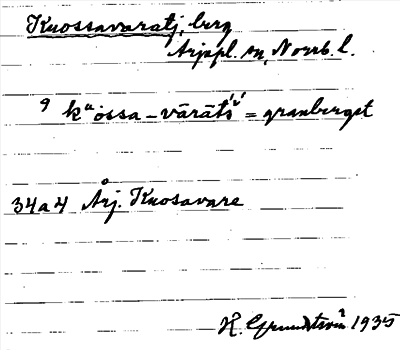 Kuossavaratj, berg
Arjepl. sn, Norrb. l.
9 kᵘossa-vārātś = granberget
34a4 Årj. Kuosavare
H. Grundström 1935